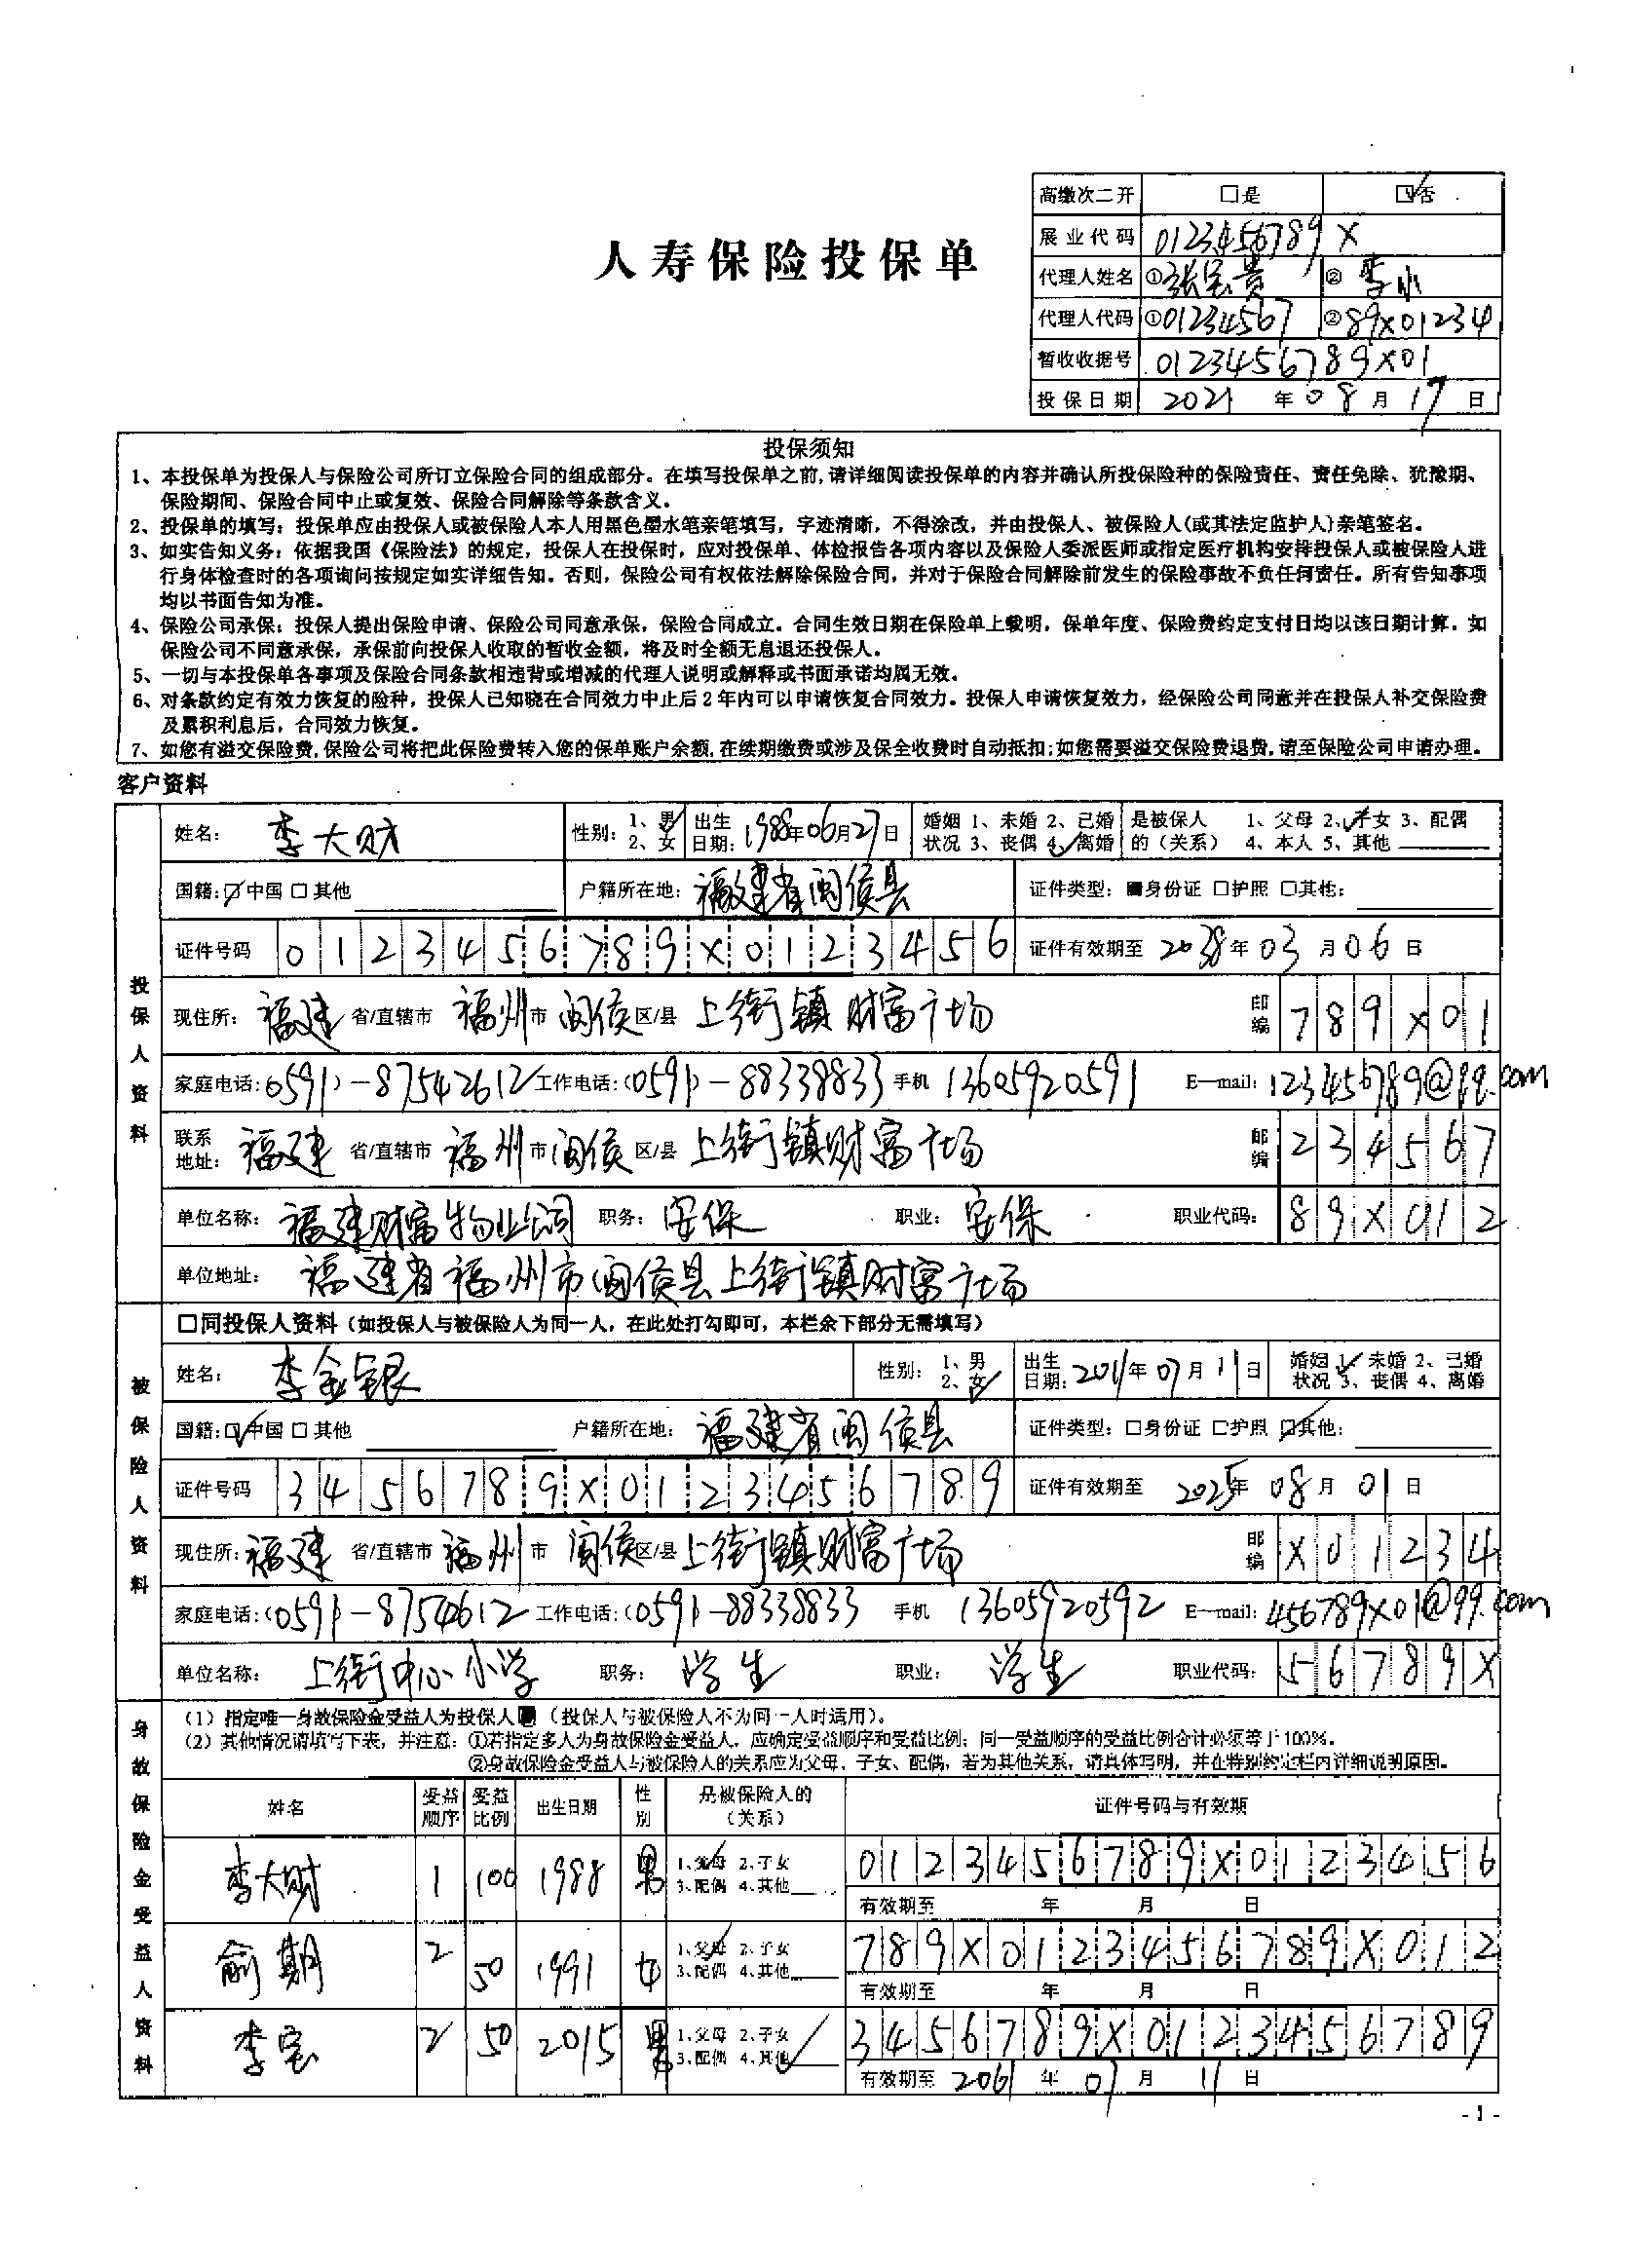 高缴次二开 □是 ☑否
人寿保险投保单
展业代码 0123456789X
代理人姓名 ①张宝贵 ②李小
代理人代码 ①01234567 ②89X01234
暂收收据号 0123456789X01
投保日期 2021 年 08 月 17 日
投保须知
1、本投保单为投保人与保险公司所订立保险合同的组成部分。在填写投保单之前,请详细阅读投保单的内容并确认所投保险种的保险责任、责任免除、犹豫期、
保险期间、保险合同中止或复效、保险合同解除等条款含义。
2、投保单的填写：投保单应由投保人或被保险人本人用黑色墨水笔亲笔填写，字迹清晰，不得涂改，并由投保人、被保险人(或其法定监护人)亲笔签名。
3、如实告知义务：依据我国《保险法》的规定，投保人在投保时，应对投保单、体检报告各项内容以及保险人委派医师或指定医疗机构安排投保人或被保险人进
行身体检查时的各项询问按规定如实详细告知。否则，保险公司有权依法解除保险合同，并对于保险合同解除前发生的保险事故不负任何责任。所有告知事项
均以书面告知为准。
4、保险公司承保：投保人提出保险申请、保险公司同意承保，保险合同成立。合同生效日期在保险单上载明，保单年度、保险费约定支付日均以该日期计算。如
保险公司不同意承保，承保前向投保人收取的暂收金额，将及时全额无息退还投保人。
5、一切与本投保单各事项及保险合同条款相违背或增减的代理人说明或解释或书面承诺均属无效。
6、对条款约定有效力恢复的险种，投保人已知晓在合同效力中止后2年内可以申请恢复合同效力。投保人申请恢复效力，经保险公司同意并在投保人补交保险费
及累积利息后，合同效力恢复。
7、如您有溢交保险费,保险公司将把此保险费转入您的保单账户余额,在续期缴费或涉及保全收费时自动抵扣;如您需要溢交保险费退费,请至保险公司申请办理。
客户资料
投保人资料
姓名: 李大财 性别: 1、男 2、女 出生日期: 1988年06月27日 婚姻状况 1、未婚 2、已婚 3、丧偶 4、离婚 是被保人的（关系） 1、父母 2、子女 3、配偶 4、本人 5、其他
国籍:☑中国 □其他 户籍所在地: 福建省闽侯县 证件类型: ■身份证 □护照 □其他:
证件号码 0123456789X0123456 证件有效期至 2038年03月06日
现住所: 福建 省/直辖市 福州 市 闽侯 区/县 上街镇财富广场 邮编 789X01
家庭电话:(0591)-87542612 工作电话:(0591)-88338833 手机 13605920591 E—mail: 123456789@qq.com
联系地址: 福建 省/直辖市 福州 市 闽侯 区/县 上街镇财富广场 邮编 234567
单位名称: 福建财富物业公司 职务: 安保 职业: 安保 职业代码: 89X012
单位地址: 福建省福州市闽侯县上街镇财富广场
被保险人资料
□同投保人资料（如投保人与被保险人为同一人，在此处打勾即可，本栏余下部分无需填写）
姓名: 李金银 性别: 1、男 2、女 出生日期: 2011年07月11日 婚姻状况 1、未婚 2、已婚 3、丧偶 4、离婚
国籍:☑中国 □其他 户籍所在地: 福建省闽侯县 证件类型: □身份证 □护照 ☑其他:
证件号码 3456789X0123456789 证件有效期至 2025年08月01日
现住所: 福建 省/直辖市 福州 市 闽侯 区/县 上街镇财富广场 邮编 X01234
家庭电话:(0591)-8754612 工作电话:(0591)-88338833 手机 13605920592 E—mail: 456789X01@qq.com
单位名称: 上街中心小学 职务: 学生 职业: 学生 职业代码: 56789X
身故保险金受益人资料
（1）指定唯一身故保险金受益人为投保人■（投保人与被保险人不为同一人时适用）。
（2）其他情况请填写下表，并注意：①若指定多人为身故保险金受益人，应确定受益顺序和受益比例；同一受益顺序的受益比例合计必须等于100%。
②身故保险金受益人与被保险人的关系应为父母、子女、配偶，若为其他关系，请具体写明，并在特别约定栏内详细说明原因。
姓名 受益顺序 受益比例 出生日期 性别 是被保险人的（关系） 证件号码与有效期
李大财 1 100 1988 男 1、父母 2、子女 3、配偶 4、其他 0123456789X0123456
有效期至 年 月 日
俞期 2 50 1991 女 1、父母 2、子女 3、配偶 4、其他 789X0123456789X012
有效期至 年 月 日
李宝 2 50 2015 男 1、父母 2、子女 3、配偶 4、其他 3456789X0123456789
有效期至 2061 年 07 月 11 日
- 1 -